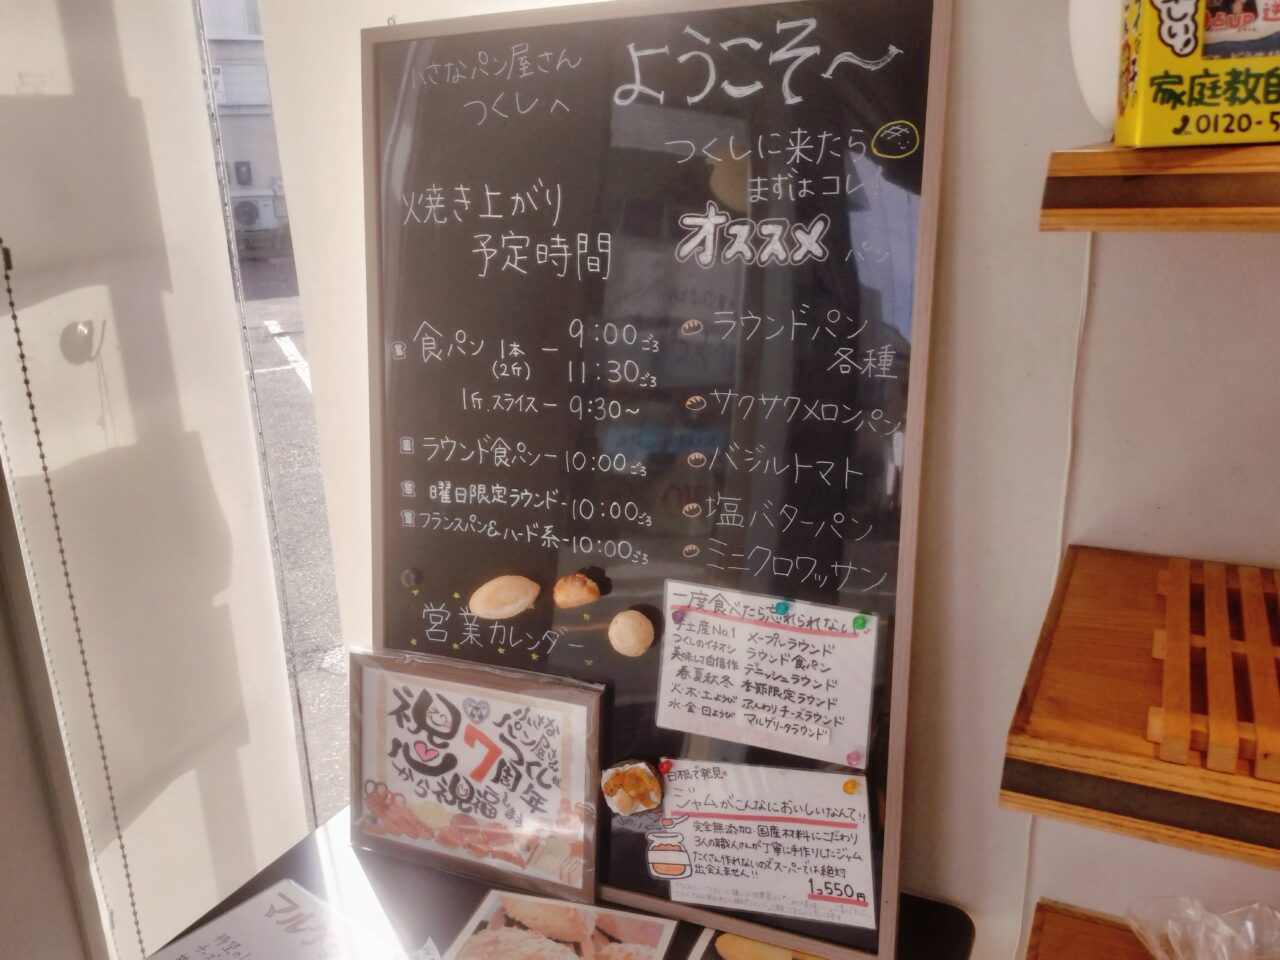 小さなパン屋さん
つくしへ
ようこそ〜
つくしに来たら
まずはコレ!
オススメ パン
焼き上がり
予定時間
食パン 1本(2斤) — 9:00ごろ
11:30ごろ
1斤.スライス — 9:30~
ラウンド食パン — 10:00ごろ
曜日限定ラウンド - 10:00ごろ
フランスパン&ハード系 - 10:00ごろ
ラウンドパン
各種
サクサクメロンパン
バジルトマト
塩バターパン
ミニクロワッサン
営業カレンダー
一度食べたら忘れられない
手土産No.1 メープルラウンド
つくしのイチオシ ラウンド食パン
美味しさ自信作 デニッシュラウンド
春夏秋冬 季節限定ラウンド
火・木・土ようび ふんわりチーズラウンド
水・金・日ようび マルゲリータラウンド
祝
ちいさな
パン屋さん
つくしが
7周年
心から祝福します
白根で発見
ジャムがこんなにおいしいなんて!!
完全無添加・国産材料にこだわり
3人の職人さんが丁寧に手作りしたジャム
たくさん作れないのでスーパーでは絶対
出会えません!!
1コ550円
家庭教
0120-5
UP